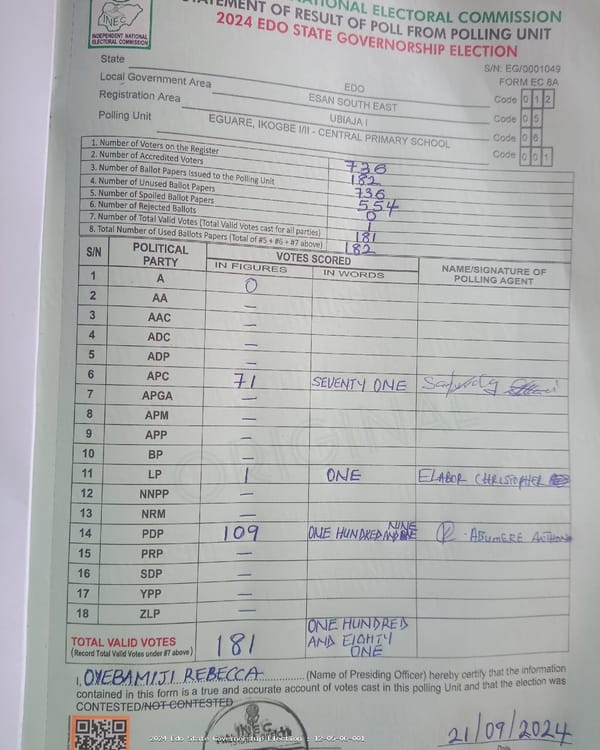 INEC
INDEPENDENT NATIONAL
ELECTORAL COMMISSION
NATIONAL ELECTORAL COMMISSION
STATEMENT OF RESULT OF POLL FROM POLLING UNIT
2024 EDO STATE GOVERNORSHIP ELECTION
S/N: EG/0001049
FORM EC 8A
State EDO Code 0 1 2
Local Government Area ESAN SOUTH EAST Code 0 5
Registration Area UBIAJA I Code 0 6
Polling Unit EGUARE, IKOGBE I/II - CENTRAL PRIMARY SCHOOL Code 0 0 1
1. Number of Voters on the Register 736
2. Number of Accredited Voters 182
3. Number of Ballot Papers Issued to the Polling Unit 736
4. Number of Unused Ballot Papers 554
5. Number of Spoiled Ballot Papers 0
6. Number of Rejected Ballots 1
7. Number of Total Valid Votes (Total Valid Votes cast for all parties) 181
8. Total Number of Used Ballots Papers (Total of #5 + #6 + #7 above) 182
S/N POLITICAL PARTY VOTES SCORED NAME/SIGNATURE OF POLLING AGENT
IN FIGURES IN WORDS
1 A 0
2 AA —
3 AAC —
4 ADC —
5 ADP —
6 APC 71 SEVENTY ONE
7 APGA —
8 APM —
9 APP —
10 BP —
11 LP 1 ONE ELABOR CHRISTOPHER
12 NNPP —
13 NRM —
14 PDP 109 ONE HUNDRED AND NINE ABUMERE
15 PRP —
16 SDP —
17 YPP —
18 ZLP —
TOTAL VALID VOTES 181 ONE HUNDRED AND EIGHTY ONE
(Record Total Valid Votes under #7 above)
ORIGINAL
I, OYEBAMIJI REBECCA (Name of Presiding Officer) hereby certify that the information
contained in this form is a true and accurate account of votes cast in this polling Unit and that the election was
CONTESTED/NOT CONTESTED
INEC
21/09/2024
2024 Edo State Governorship Election - 12-05-06-001